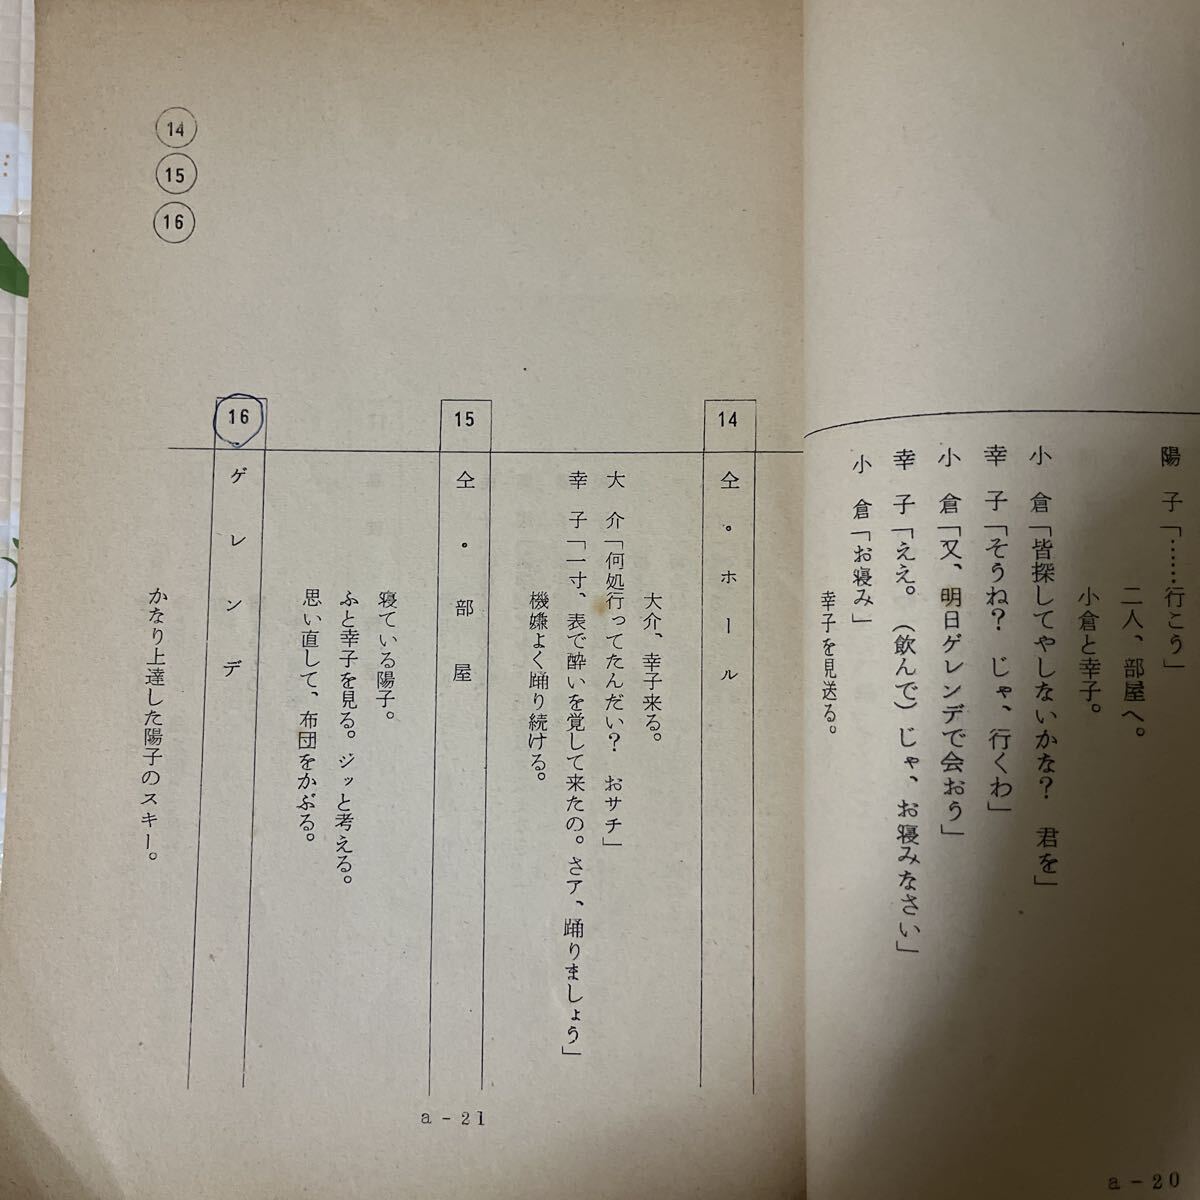 陽子「……行こう」
二人、部屋へ。
小倉と幸子。
小倉「皆探してやしないかな？　君を」
幸子「そうね？　じゃ、行くわ」
小倉「又、明日ゲレンデで会おう」
幸子「ええ。（飲んで）じゃ、お寝みなさい」
小倉「お寝み」
幸子を見送る。
a－20
14 仝。ホール
大介、幸子来る。
大介「何処行ってたんだい？　おサチ」
幸子「一寸、表で酔いを覚して来たの。さア、踊りましょう」
機嫌よく踊り続ける。
15 仝。部屋
寝ている陽子。
ふと幸子を見る。ジッと考える。
思い直して、布団をかぶる。
16 ゲレンデ
かなり上達した陽子のスキー。
14
15
16
a－21